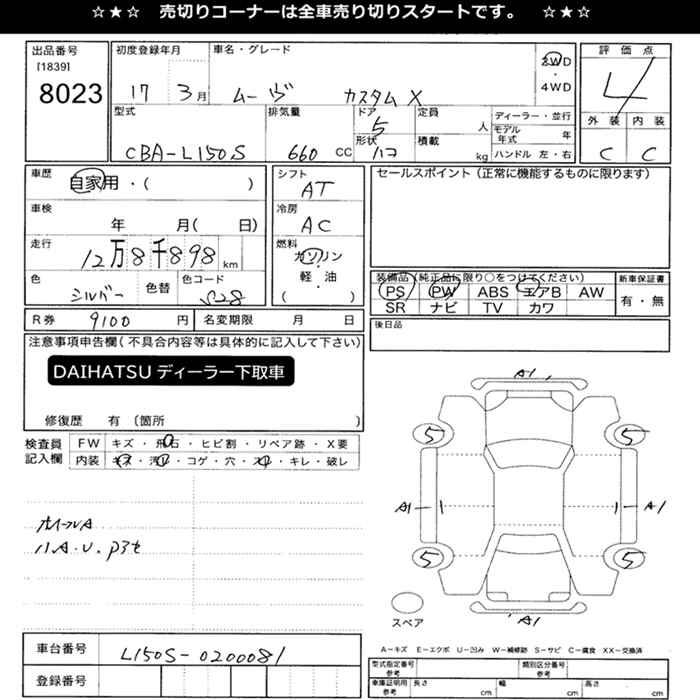 ☆★☆ 売切りコーナーは全車売り切りスタートです。 ☆★☆
出品番号 初度登録年月 車名・グレード 評価点
[1839]
8023 17 3月 ムーヴ カスタムX 2WD・4WD 4
型式 排気量 ドア 定員 ディーラー・並行 外装 内装
CBA-L150S 660 CC 5 人 モデル年式 年 C C
形状 積載 kg ハンドル 左・右
車歴 シフト セールスポイント (正常に機能するものに限ります)
自家用・( ) AT
車検 冷房
年 月( 日) AC
走行 燃料
12万8千898km ガソリン・軽・油
色 色替 色コード ( )
シルバー S28
装備品(純正品に限り○をつけてください) 新車保証書
PS PW ABS エアB AW 有・無
SR ナビ TV カワ
R券 9100円 名変期限 月 日
後日品
注意事項申告欄(不具合内容等は具体的に記入して下さい)
DAIHATSU ディーラー下取車
修復歴 有 (箇所 )
検査員記入欄 FW キズ・飛石・ヒビ割・リペア跡・X要
内装 キズ・汚レ・コゲ・穴・スレ・キレ・破レ
A1
5 5
A1 A1
5 5
A1
スペア
A-キズ E-エクボ U-凹み W-補修跡 S-サビ C-腐食 XX-交換済
車台番号 L150S-0200081
登録番号
型式指定番号 参考 類別区分番号 参考
車庫証明用 参考 長さ cm 幅 cm 高さ cm